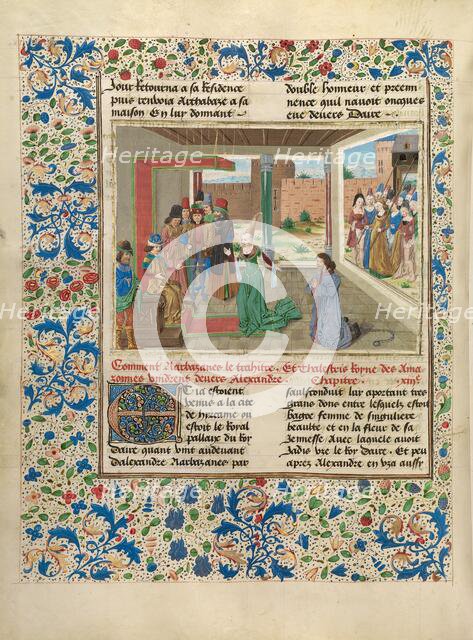 Jour retourna a sa residence
puis renvoia Arthabaze a sa
maison En lui donnant
double honneur et preemi
nence quil navoit oncques
eue devers Daire
Comment Narbazanes le trahitre. Et Thalestris Royne des Ama
zonnes vindrent devers Alexandre
Chapitre. xxiiie.
Eia estoient
venus a la cite
de hircame ou
estoit le Roial
pallaix du Roy
Daire quant vint audevant
dalexandre Narbazanes par
saulfconduit luy aportant tres
grans dons entre lesquelz estoit
Bagoe femme de singuliere
beaulte et en la fleur de sa
Jennesse Avec laquele avoit
Jadis use le Roy Daire. Et peu
apres Alexandre en usa aussy
Heritage
Images
Heritage
Heritage
Heritage
Heritage
Heritage